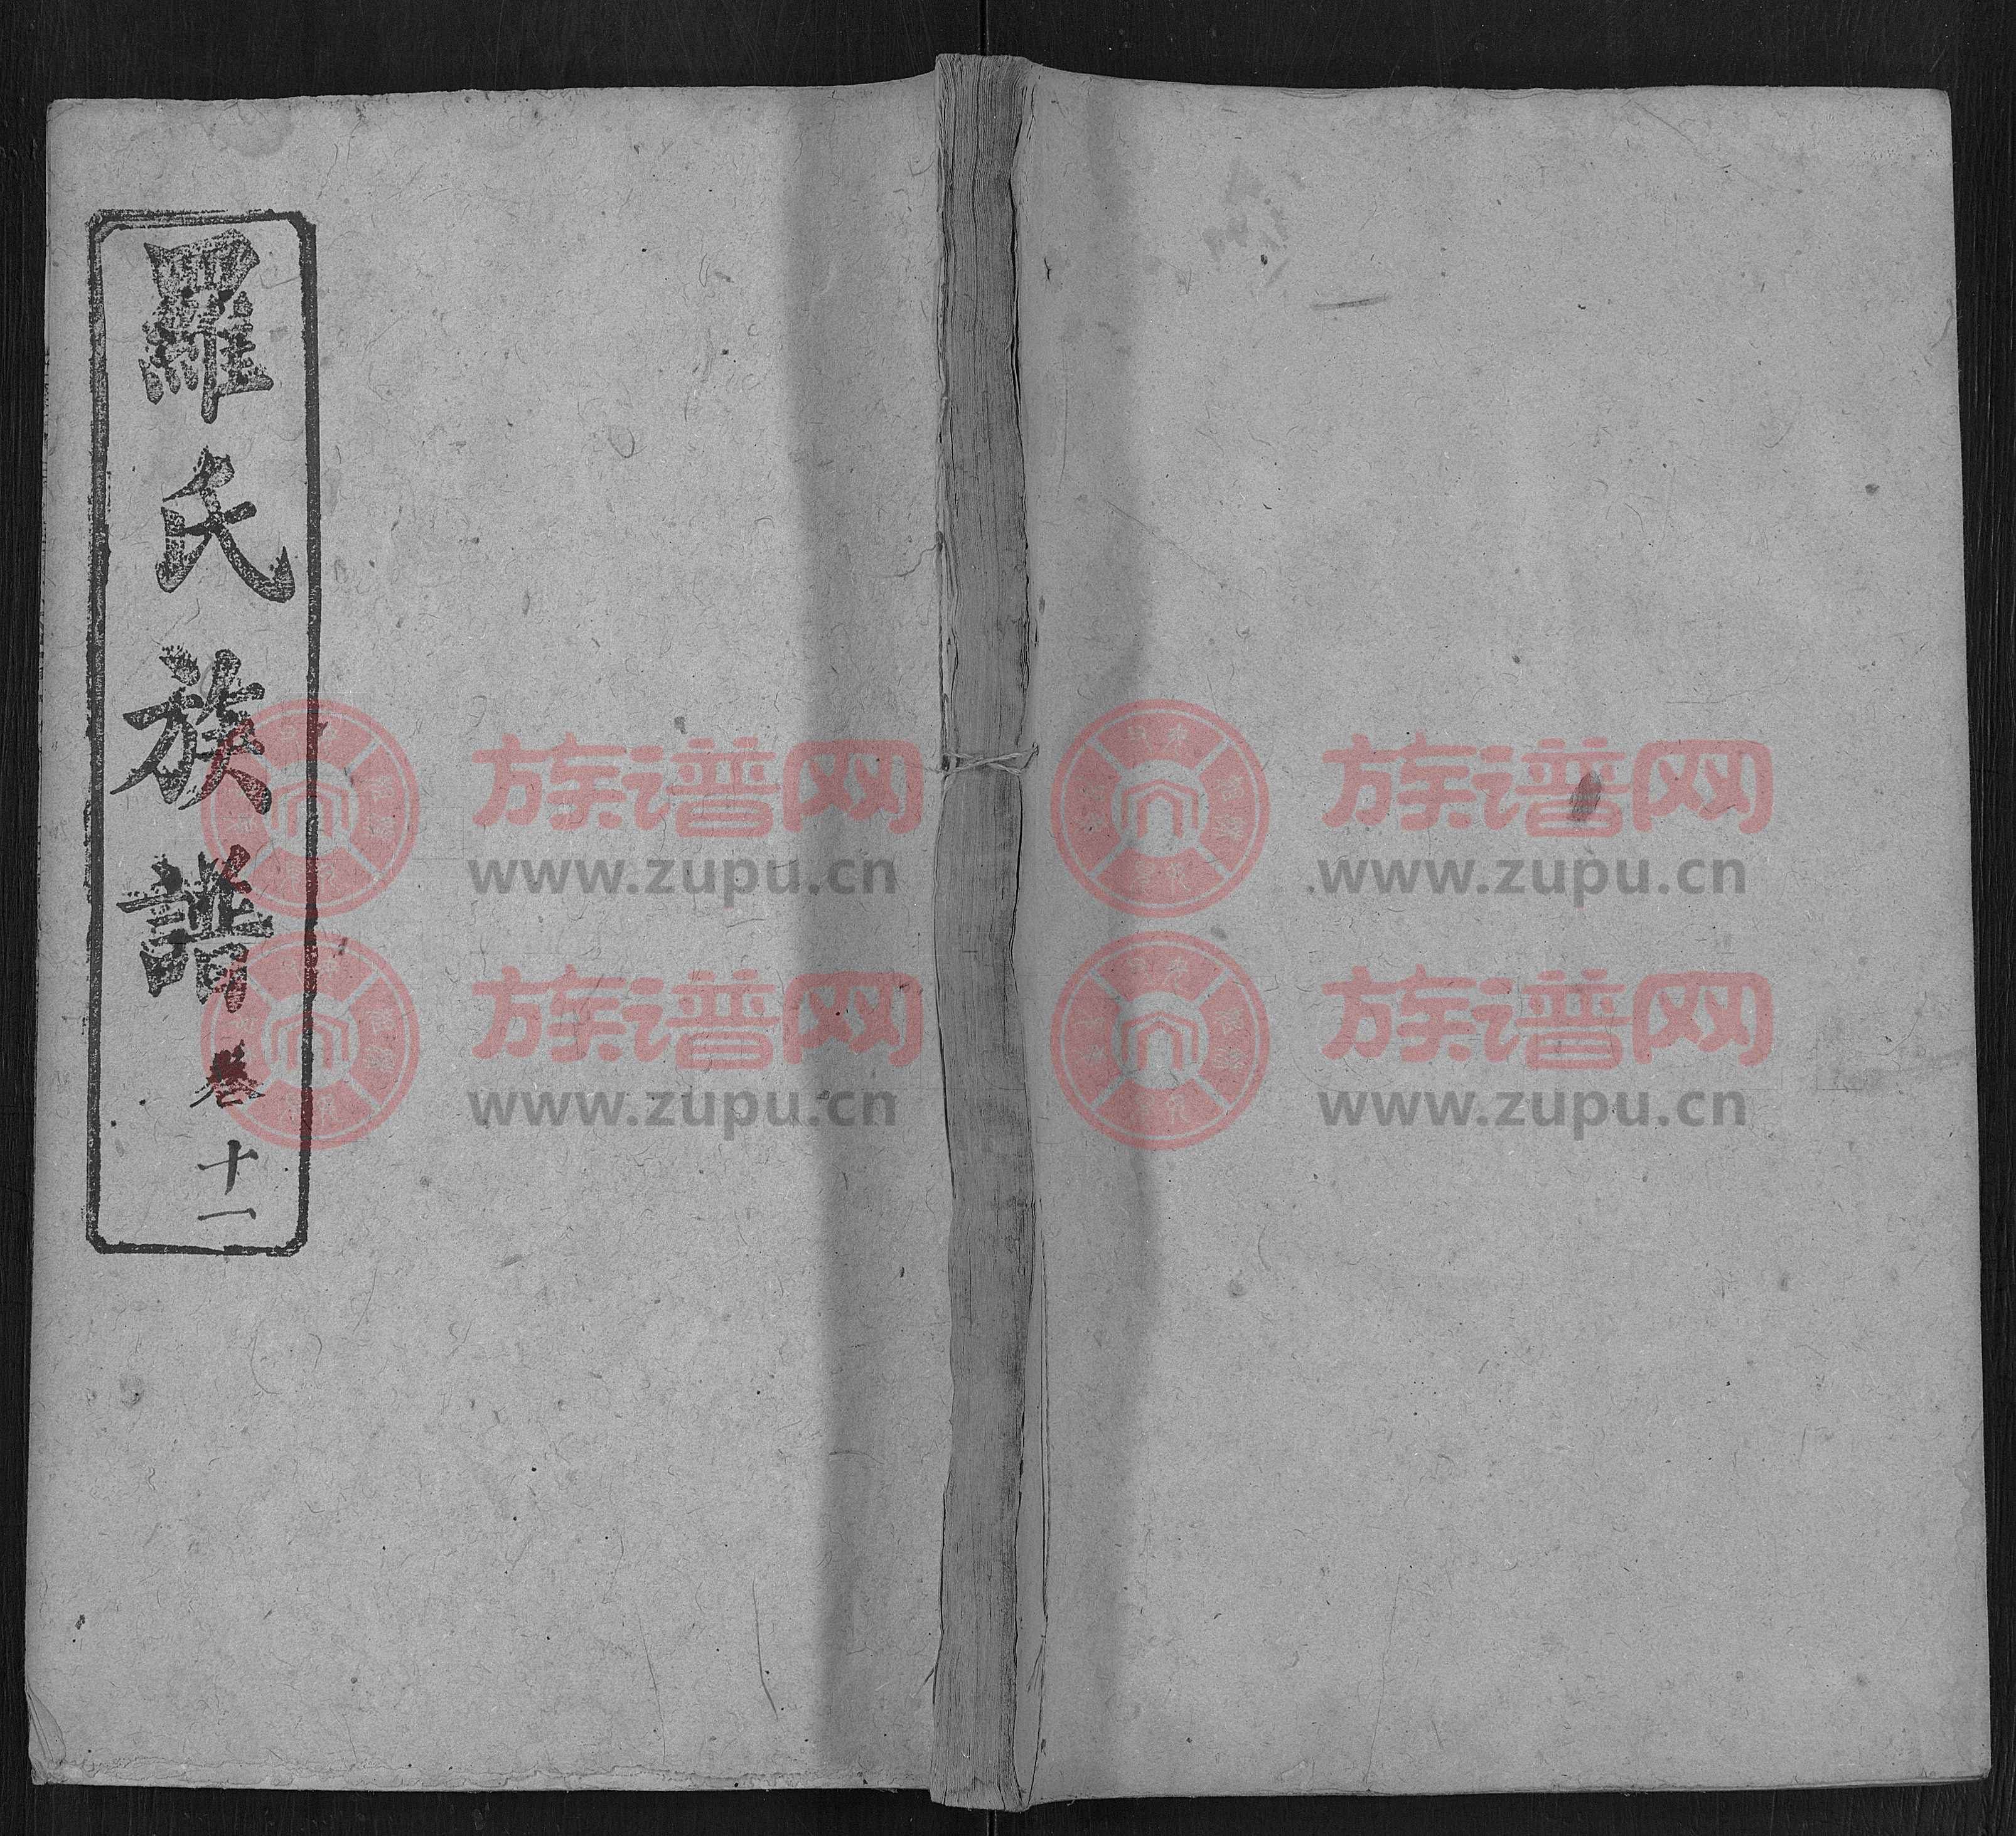 羅氏族譜 卷十一
族谱网
www.zupu.cn
族谱网
www.zupu.cn
族谱网
www.zupu.cn
族谱网
www.zupu.cn